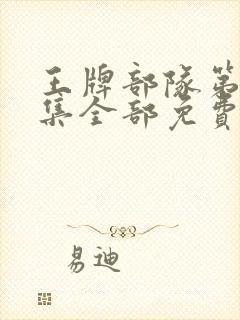 王牌部隊第
集全部免費
易迪